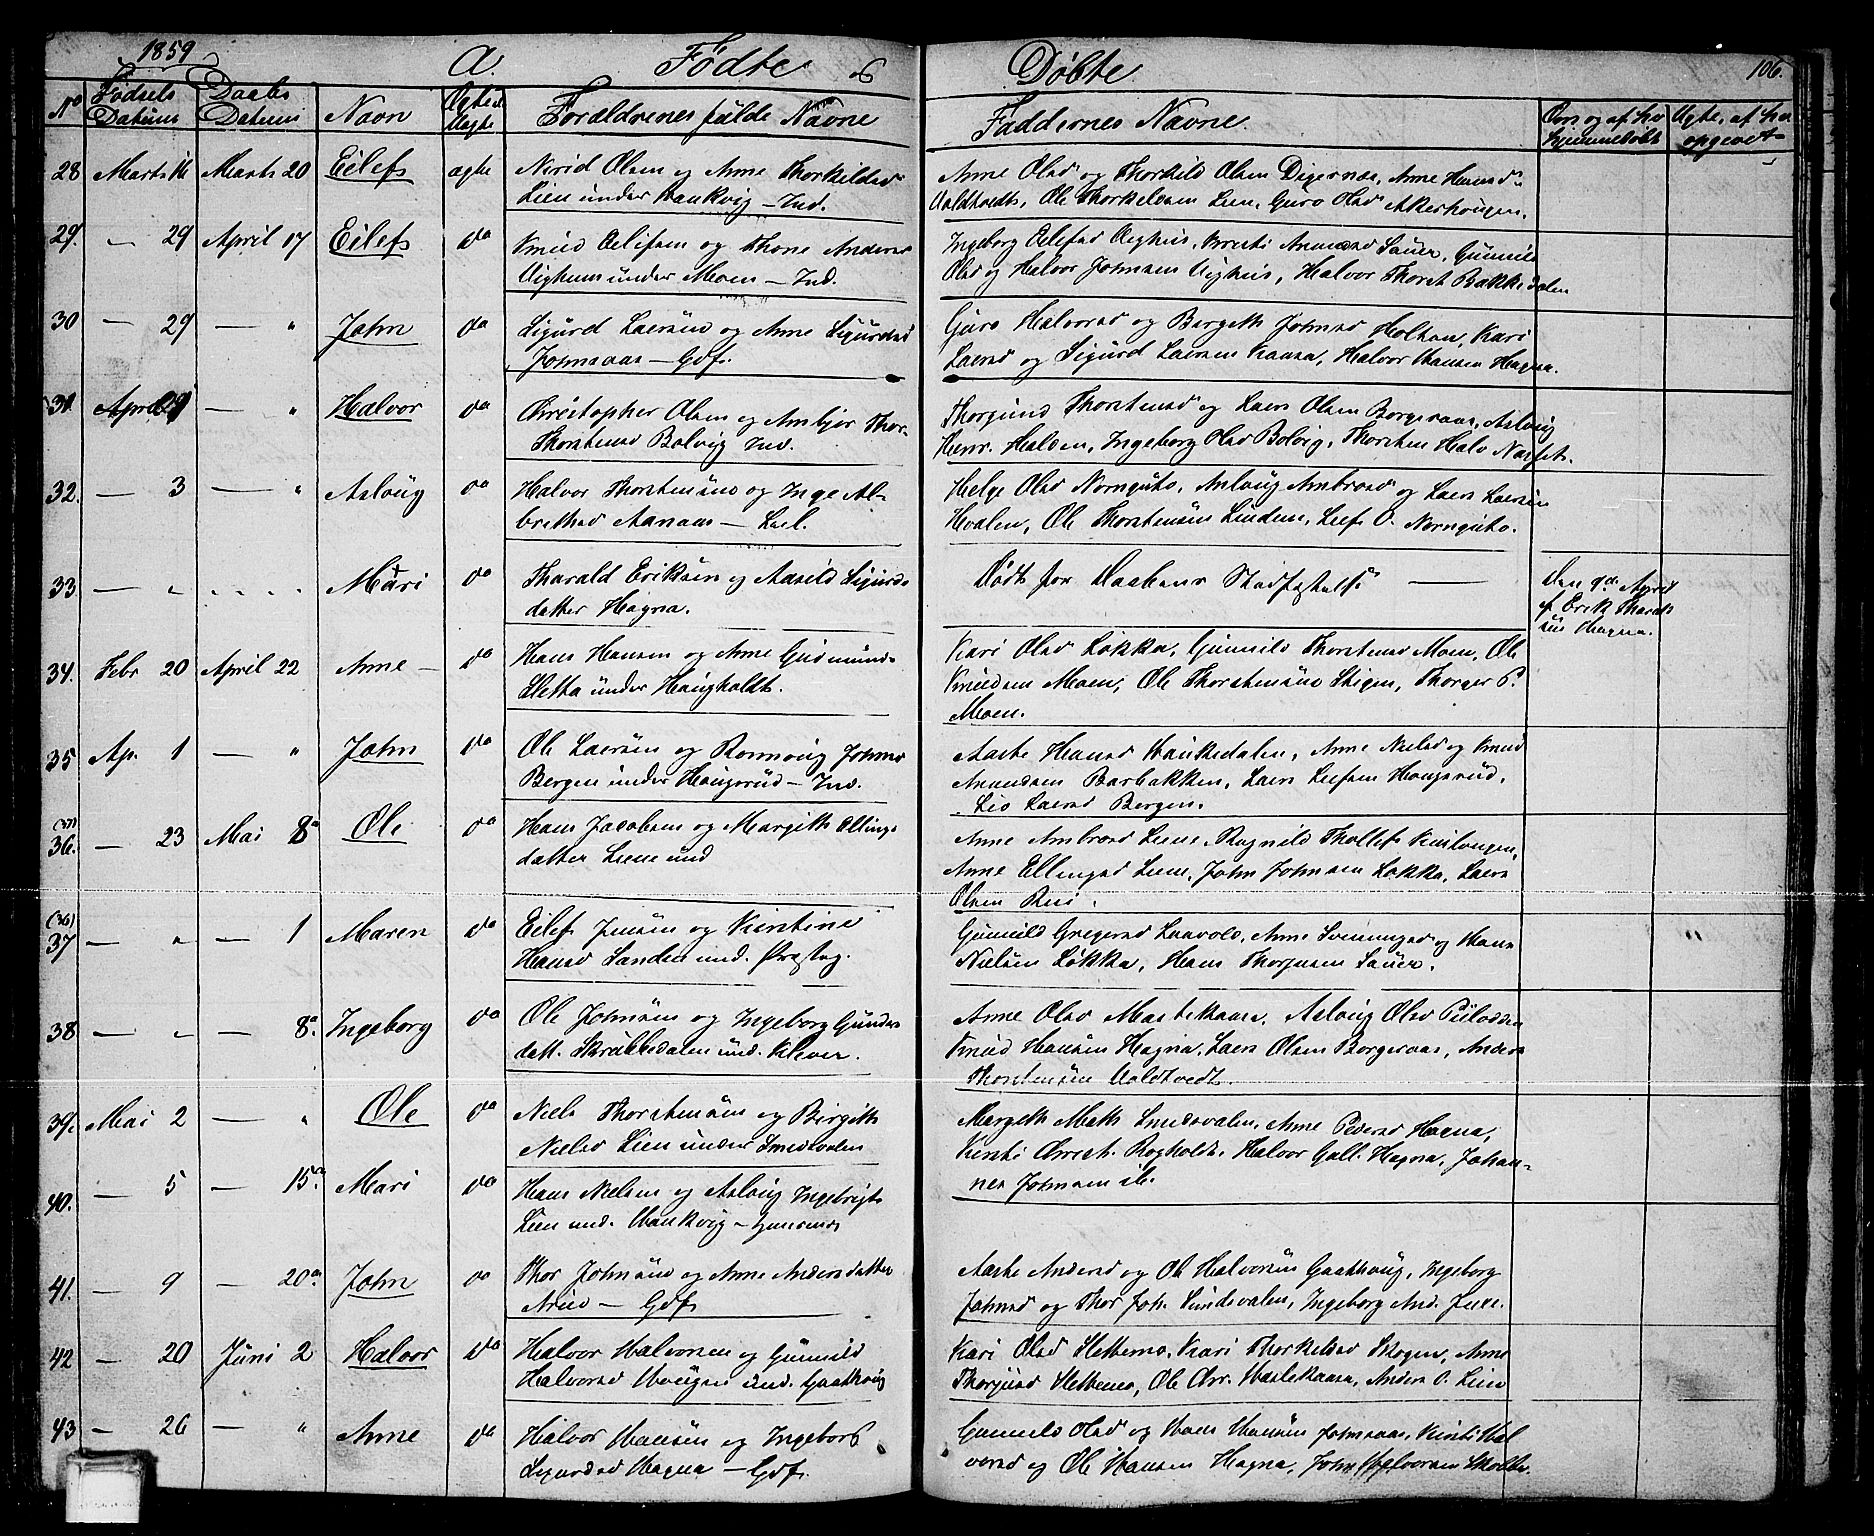 1859
A. Födte & Döbte
106.
No Födsels Datum Daabs Datum Navn Ægte el. Uægte Forældrenes fulde Navne Faddernes Navne.
28 Marts 16 Marts 20 Eilef ægte Nerid Olsen og Anne Thorkildsd
Lien under Vankvig – Ind.
Anne Olsd og Thorkild Olsen Digernæs, Anne Hansd
Valdtvedt, Ole Thorkelsen Lien, Guro Olsd Akerhougen.
29. – 29 April 17 Eilef do Knud Eilifsen og Thone Anders
Vighuus under Moen – Ind.
Ingeborg Eilefsd Vighus, Kirsti Amundsd Sauer, Gunnild
Olsd og Halvor Johnsen Vighus, Halvor Thorst Bakkedalen
30 – 29 – " John do Sigurd Laersen og Anne Sigurdsd
Johnsaas – Gdf.
Guro Halvorsd og Bergith Johnsd Holtan, Kari
Laersd og Sigurd Laersen Kaasa, Halvor Hansen Hagna.
31. April – " Halvor do Christopher Olsen og Anbjør Thor-
Thorstensd Bolvig Ind.
Thorgund Thorstensd og Laers Olsen Borgeraas, Aslaug
Henr. Halden, Ingeborg Olsd Bolvig, Thorsten Halv Næsset.
32. – 3 – " Aslaug do Halvor Thorstensen og Inge Al-
brethsd Aanaas – Lael.
Helge Olsd Norngut, Aslaug Ambrosd og Laers Laersen
Hvalen, Ole Thorstensen Lindem, Leef O. Norngut.
33 – " Mari do Tharald Eriksen og Aasild Sigurds
datter Hagna.
Död for Daabens Stadfæstelse –
Den 9de April
af Erik Tharald
sen Hagna.
34. Febr 20 April 22 Anne – do Hans Hansen og Anne Gudmunds
Sletta under Haugholdt.
Kari Olsd Løkka, Gunnild Thorstensd Moen, Ole
Knudsen Moen, Ole Thorstensen Stigen, Thorger P.
Moen.
35 Ap. 1 – " John do Ole Laersen og Ronnoug Johnsd
Bergen under Haugerud – Ind.
Aaste Hansd Vankedalen, Anne Nielsd og Knud
Amundsen Barbakken, Laers Leefsen Haugerud,
Liv Laersd Bergen.
(37)
36. – 23 Mai 8a Ole do Hans Jacobsen og Margith Ellings
datter Liene und
Anne Ambrosd Liene, Ragnild Thollefs
Anne Ellingsd Liene, John Johnsen Løkka, Laers
Olsen Rui.
(36)
37 – " – 1 Maren do Eilef Jensen og Kirstine
Hansd Sanden und. Præsteg.
Gunnild Gregersd Laavold, Anne Svenungsd og Hans
Nielsen Løkka, Hans Thorjusen Sauer.
38 – " – 8a. Ingeborg do Ole Johnsen og Ingeborg Gunders
datt. Skrubbedalen und. Klever.
Anne Olsd Mastekaasa, Aslaug Olsd
Knud Hansen Hagna, Laers Olsen Borgeraas, Anders
Thorstensen Valdtvedt.
39. Mai 2 – " Ole do Niels Thorstensen og Birgith
Nielsd Lien under Smedsvalen
Margeth Math Smedsvalen, Anne Pedersd Hagna,
Kirsti Christ. Rogholdt, Halvor Gull. Hagna, Johan-
nes Johnsen ib.
40. – 5 – 15a. Mari do Hans Nielsen og Aslaug Ingebrigts
Lien und. Vankvig –
41. – 9 – 20a John do Thor Johnsen og Anne Andersdatter
Aarud – Gdf.
Aaste Andersd og Ole Halvorsen Gaathaug, Ingeborg
Johnsd og Thor Joh. Sundsvalen, Ingeborg And. Juve.
42 – 20 Juni 2 Halvor do Halvor Halvorsen og Gunnild
Halvorsd Haugen und. Gaathaug
Kari Olsd Slettemo, Kari Thorkildsd Skogen, Anne
Thorjusd Slettemo, Ole Chr. Vaslekaasa, Anders O. Lien
43 – 26 – " Anne do Halvor Hansen og Ingeborg
Sigurdsd Hagna – Gdf.
Gunnild Olsd og Hans Hansen Johnsaas, Kirsti Hal
vorsd og Ole Hansen Hagna, John Halvorsen